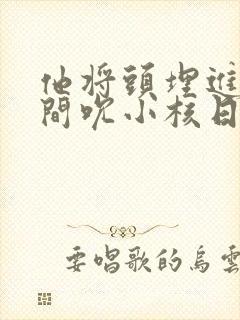 他将頭埋進
間吹小核日
要唱歌的烏雲